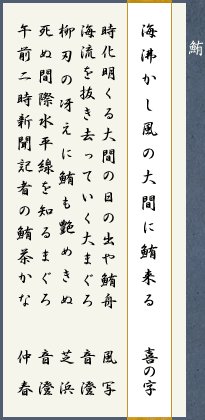 鮪
海沸かし風の大間に鮪来る 喜の字
時化明くる大間の日の出や鮪舟 風写
海流を抜き去っていく大まぐろ 音澄
柳刃の冴えに鮪も艶めきぬ 芝浜
死ぬ間際水平線を知るまぐろ 音澄
午前二時新聞記者の鮪茶かな 仲春